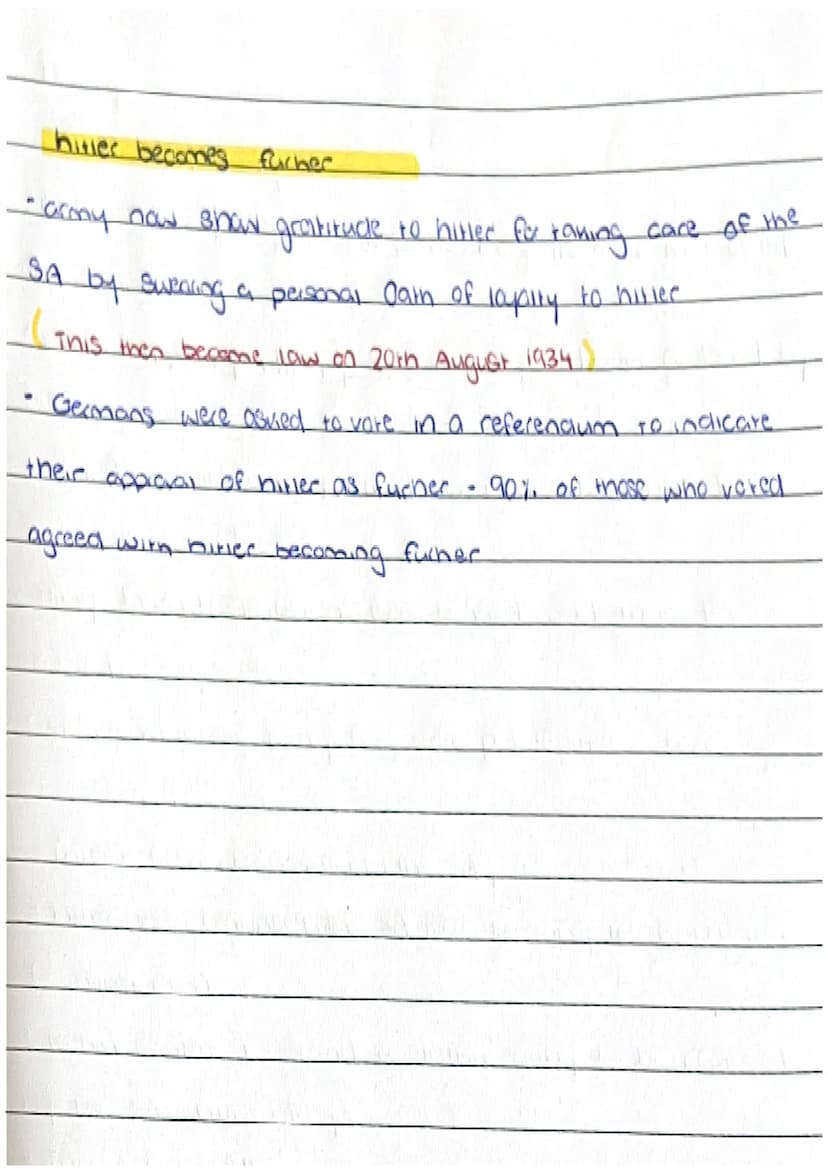 hitler becomes fucher
• army now show gratitude to hitler for taking care of the
SA by swearing a personal Oath of loyalty to hitler
(This then became law on 20th August 1934)
• Germans were asked to vote in a referendum to indicate
their approval of hitler as furher - 90% of those who voted
agreed with hitler becoming furher